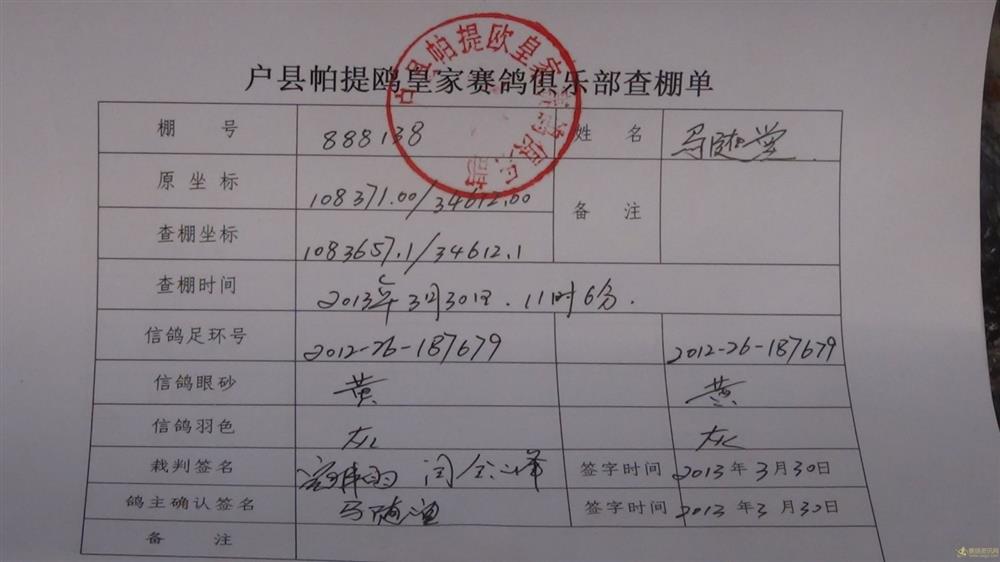 户县帕提鸥皇家赛鸽俱乐部查棚单
户县帕提欧皇家赛鸽俱乐部
棚 号 888138 姓 名 马随堂
原坐标 108371.00/34612.00 备 注
查棚坐标 1083657.1/34612.1
查棚时间 2013年3月30日.11时6分.
信鸽足环号 2012-26-187679 2012-26-187679
信鸽眼砂 黄 黄
信鸽羽色 灰 灰
裁判签名 闫 签字时间 2013年3月30日
鸽主确认签名 马随 签字时间 2013年3月30日
备 注